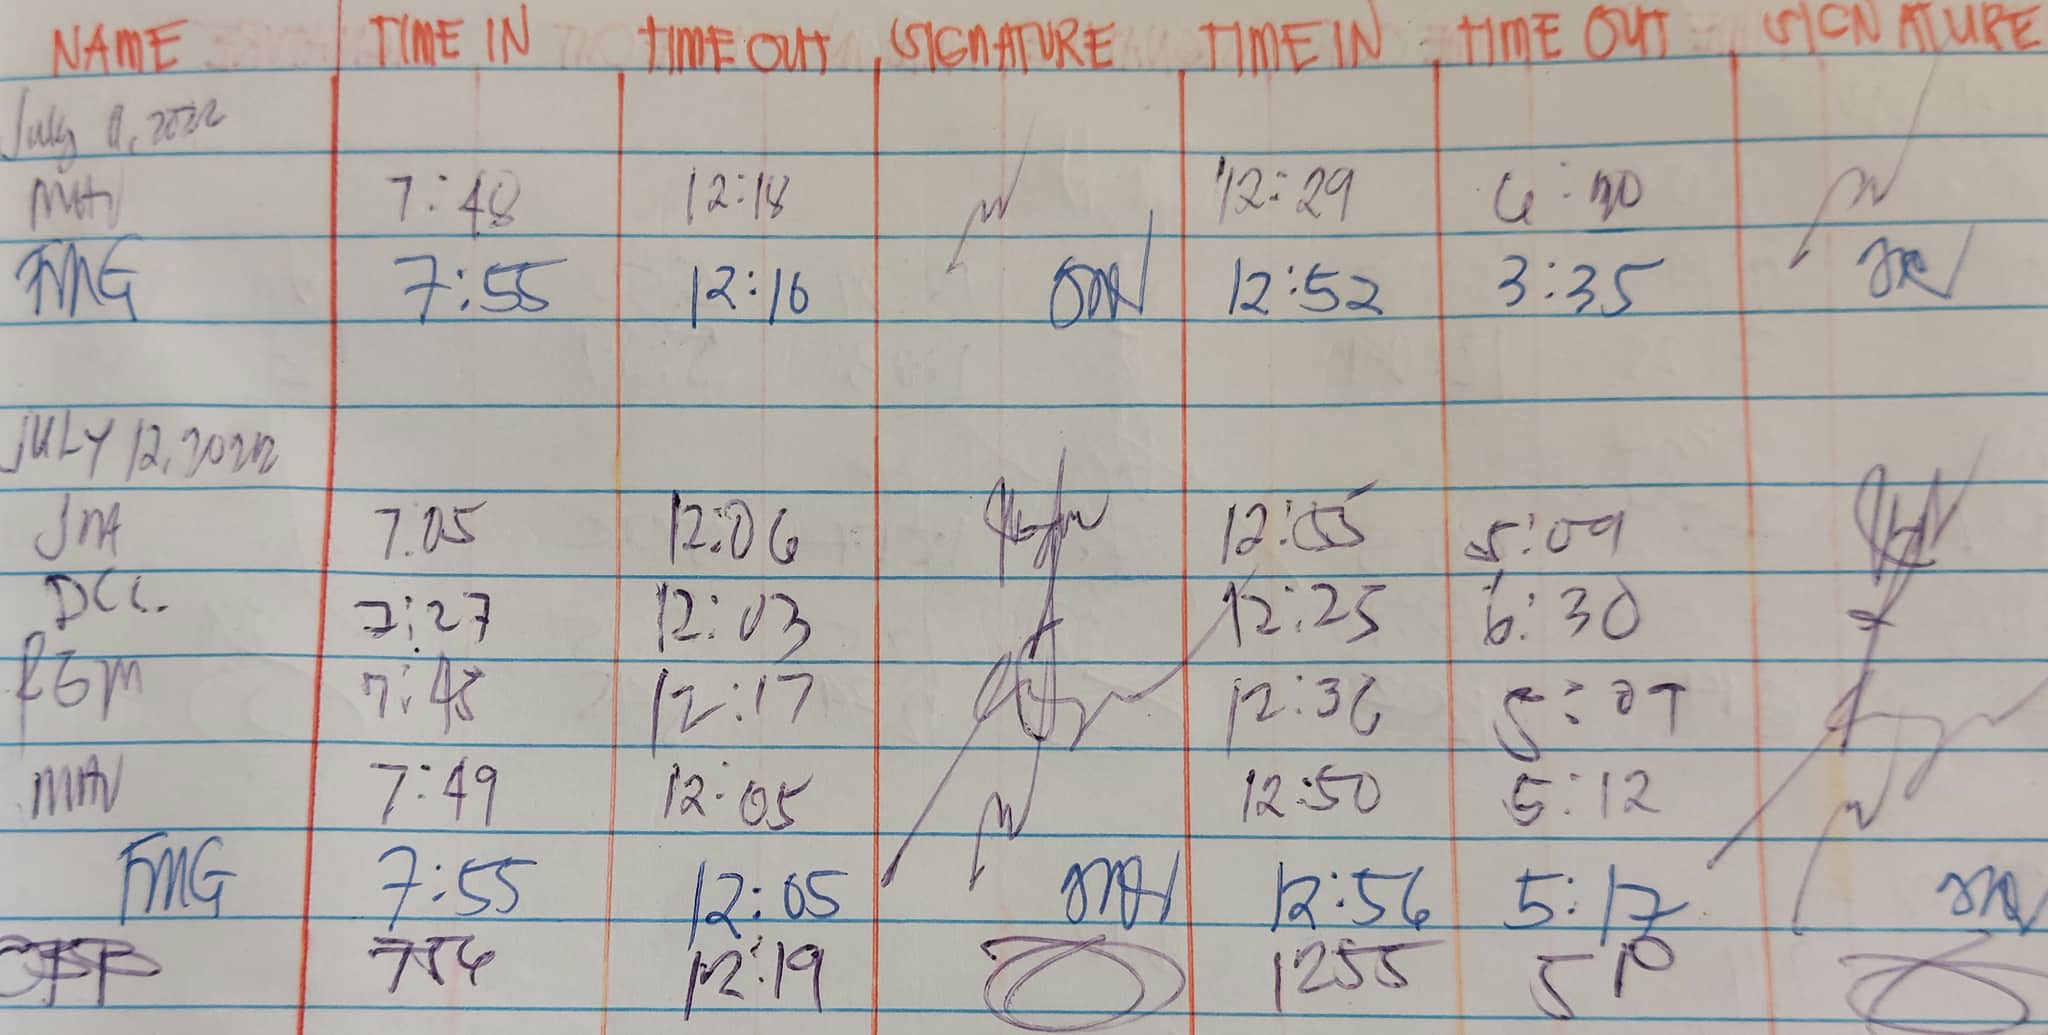 NAME TIME IN TIME OUT SIGNATURE TIME IN TIME OUT SIGNATURE
July 2022
MAV 7:48 12:18 12:29
FMG 7:55 12:16 12:52 3:35
JULY 12, 2022
JNA 7:05 12:06 12:55 5:09
DCC. 7:27 12:03 12:25 6:30
RGM 12:17 12:36 5:07
MAV 7:49 12:05 12:50 5:12
FMG 7:55 12:05 12:56 5:17
756 12:19 1255 510